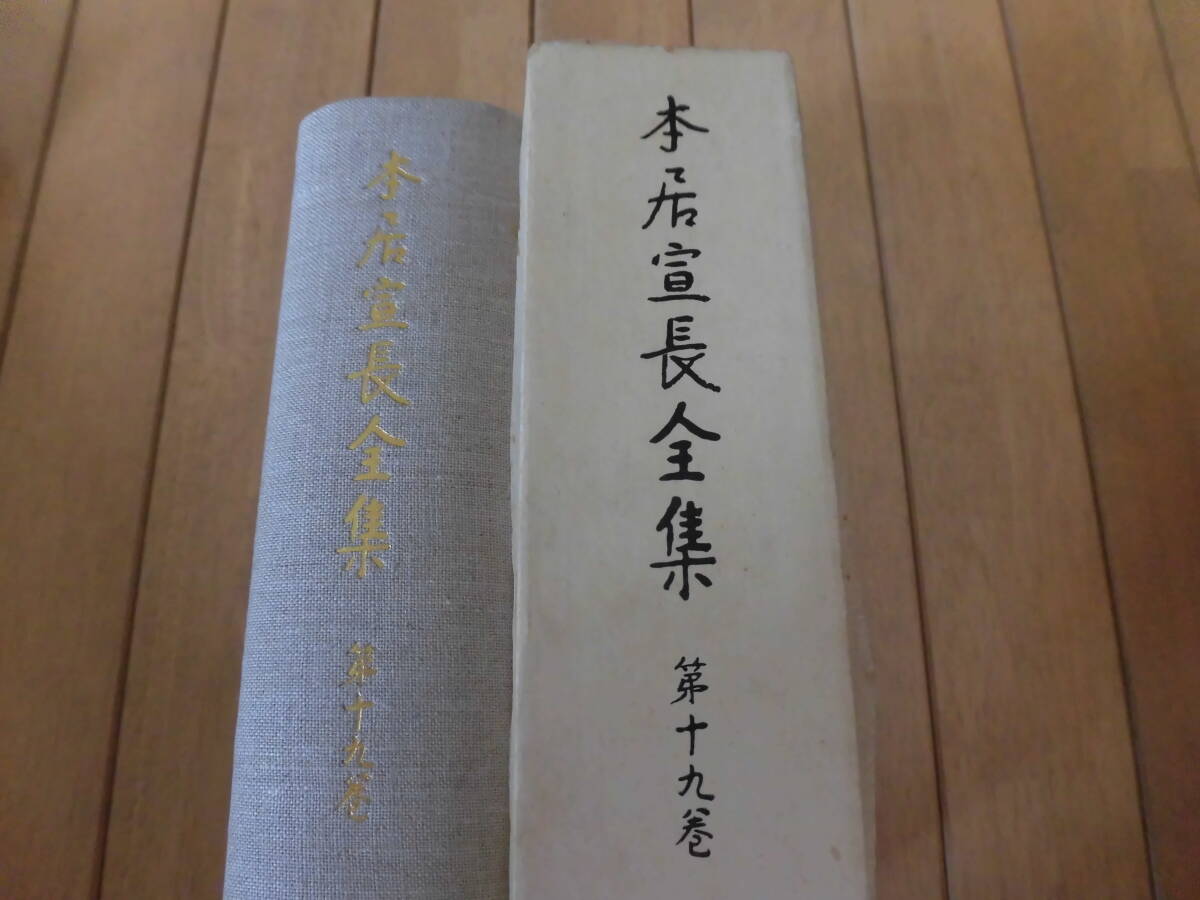 本居宣長全集
第十九巻
本居宣長全集
第十九巻